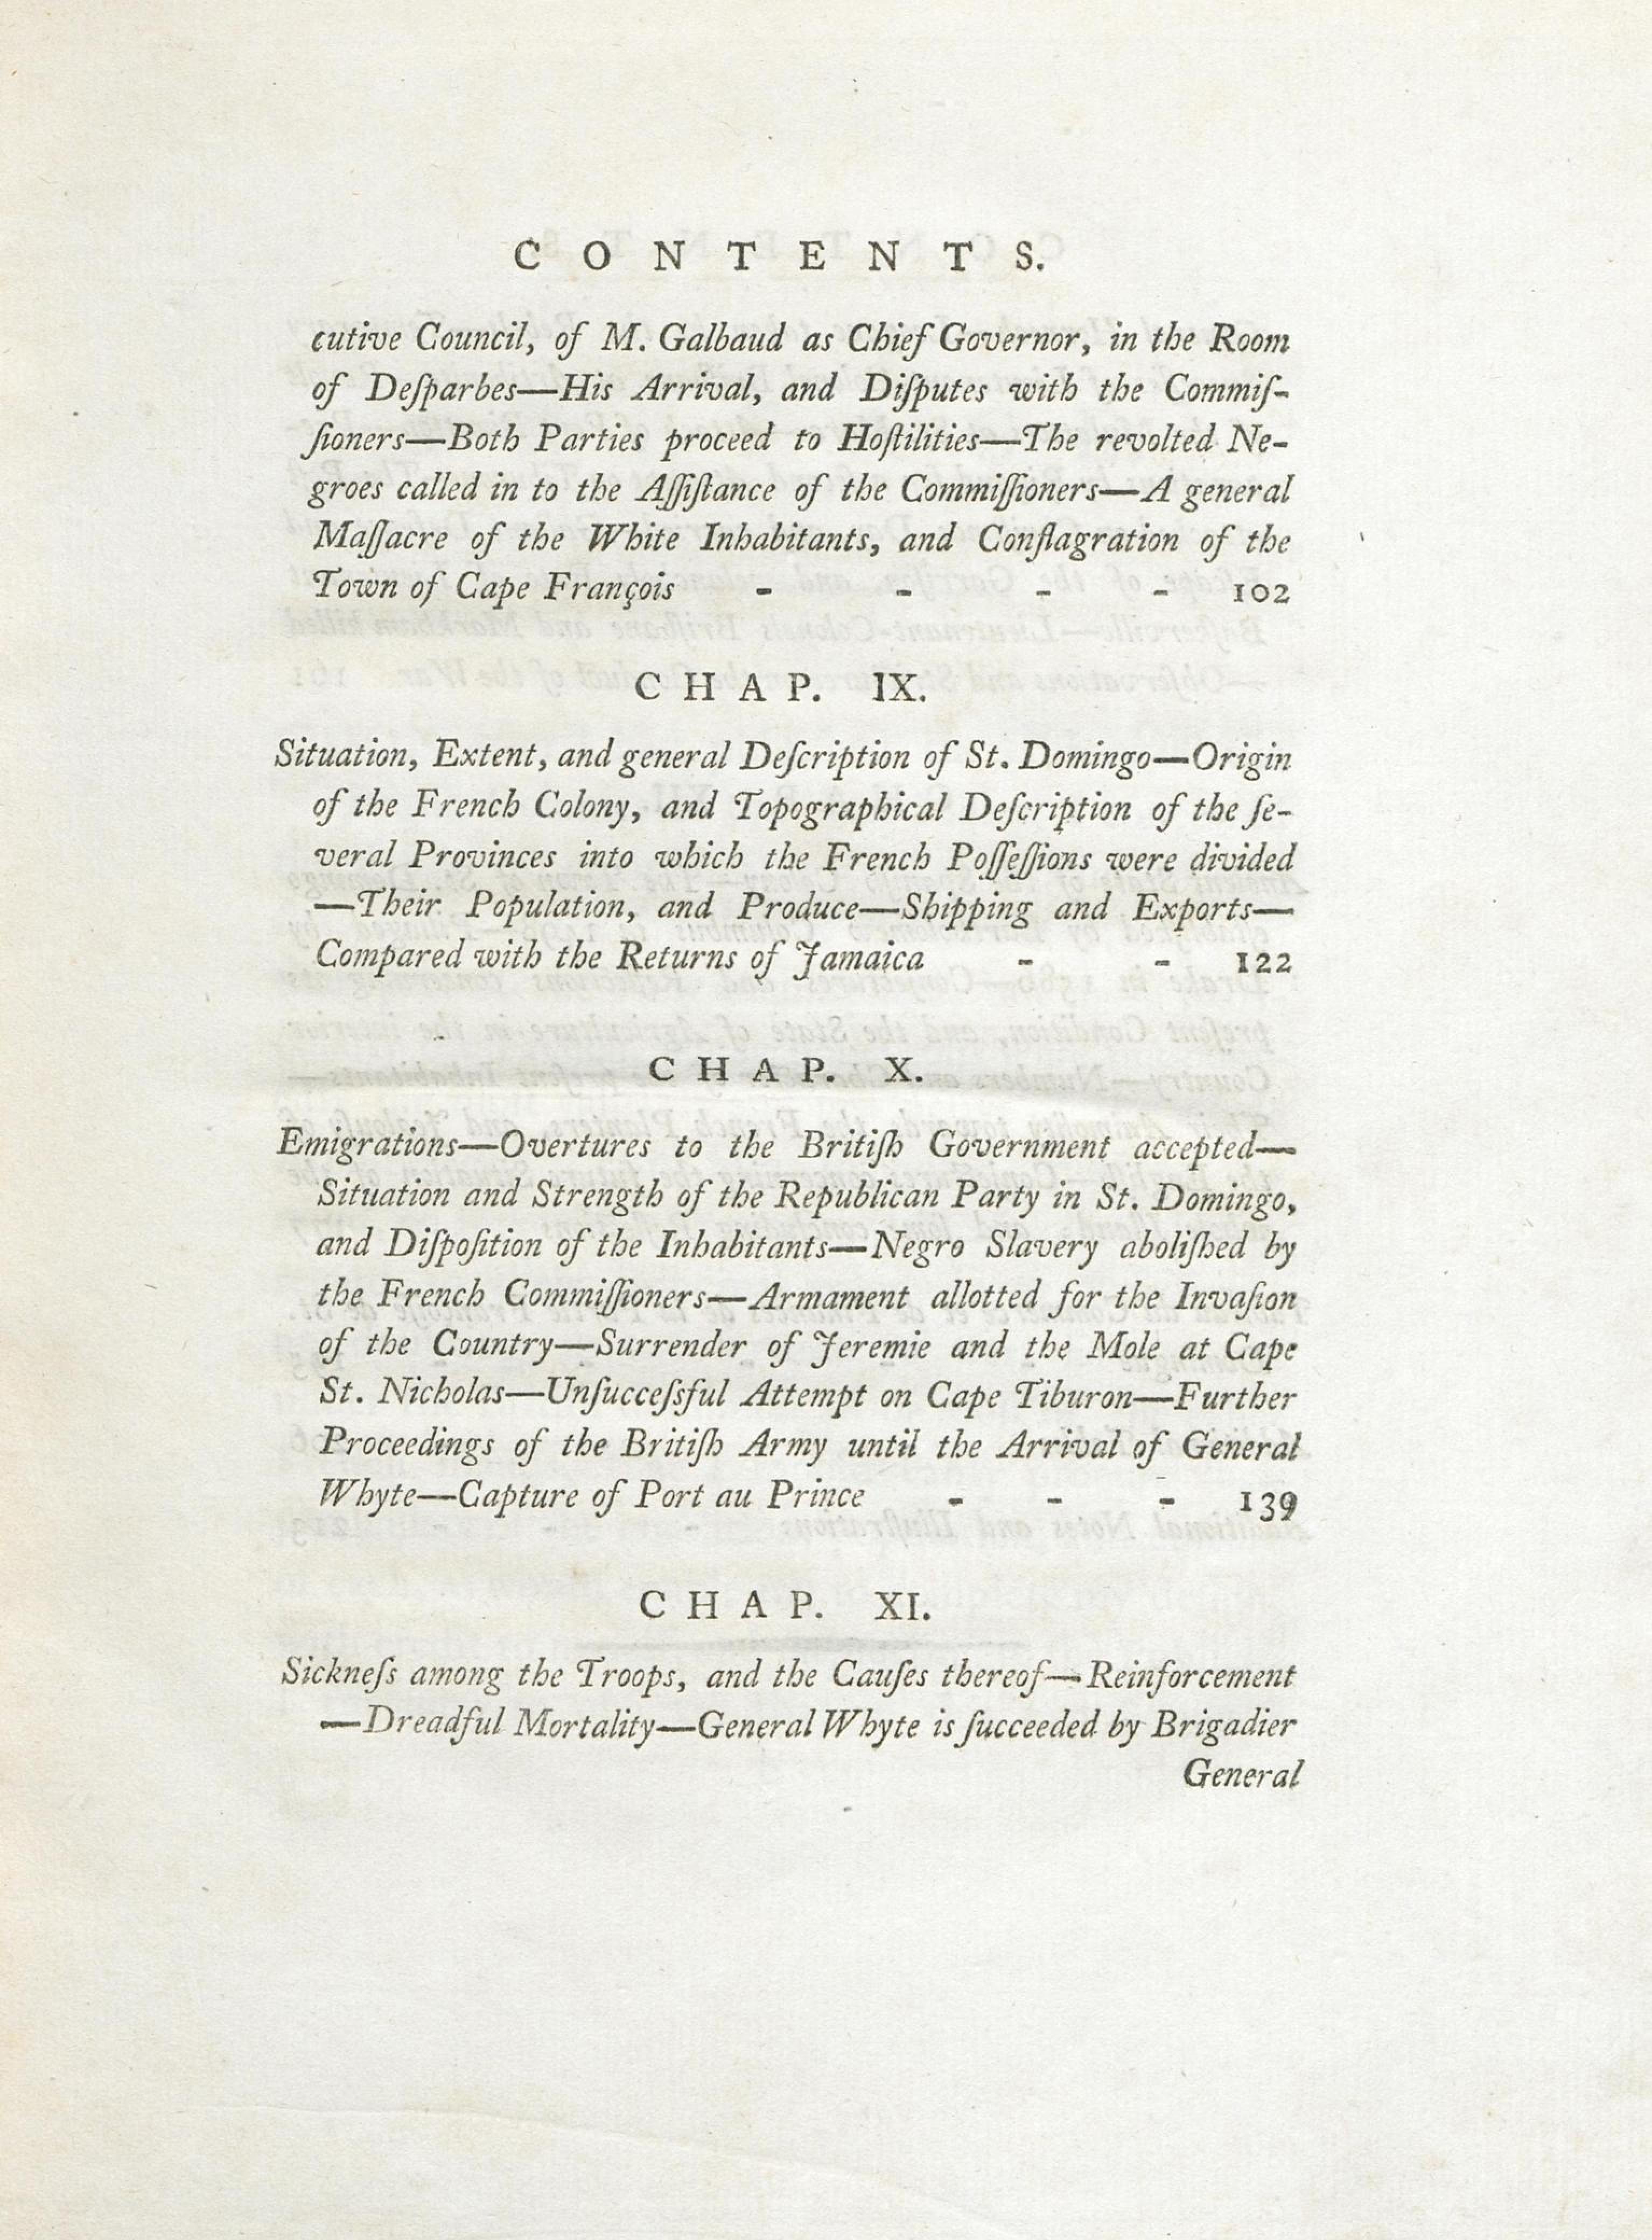 CONTENTS.
cutive Council, of M. Galbaud as Chief Governor, in the Room
of Deſparbes—His Arrival, and Diſputes with the Commiſ-
ſioners—Both Parties proceed to Hoſtilities—The revolted Ne-
groes called in to the Aſſiſtance of the Commiſſioners—A general
Maſſacre of the White Inhabitants, and Conflagration of the
Town of Cape François - - - - 102
CHAP. IX.
Situation, Extent, and general Deſcription of St. Domingo—Origin
of the French Colony, and Topographical Deſcription of the ſe-
veral Provinces into which the French Poſſeſſions were divided
—Their Population, and Produce—Shipping and Exports—
Compared with the Returns of Jamaica - - 122
CHAP. X.
Emigrations—Overtures to the Britiſh Government accepted—
Situation and Strength of the Republican Party in St. Domingo,
and Diſpoſition of the Inhabitants—Negro Slavery aboliſhed by
the French Commiſſioners—Armament allotted for the Invaſion
of the Country—Surrender of Jeremie and the Mole at Cape
St. Nicholas—Unſucceſsful Attempt on Cape Tiburon—Further
Proceedings of the Britiſh Army until the Arrival of General
Whyte—Capture of Port au Prince - - - 139
CHAP. XI.
Sickneſs among the Troops, and the Cauſes thereof—Reinforcement
—Dreadful Mortality—General Whyte is ſucceeded by Brigadier
General